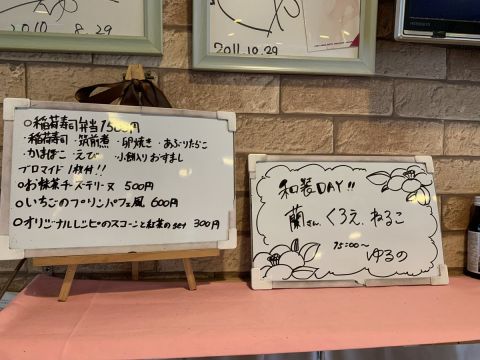 2010 8.29
2011.10.29
○稲荷寿司弁当1500円
・稲荷寿司・筑前煮・卵焼き・あぶりたらこ
・かまぼこ・えび・小餅入りおすまし
ブロマイド1枚付!!
○お抹茶チーズテリーヌ 500円
○いちごのプリンパフェ風 600円
○オリジナルレシピのスコーンと紅茶のset 300円
和装DAY!!
蘭さん、くろえ、ねるこ
15:00〜
ゆるの